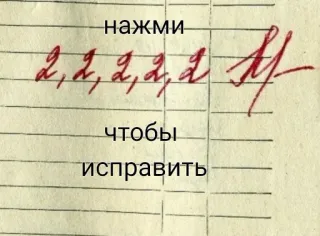 нажми
2, 2, 2, 2, 2
чтобы
исправить